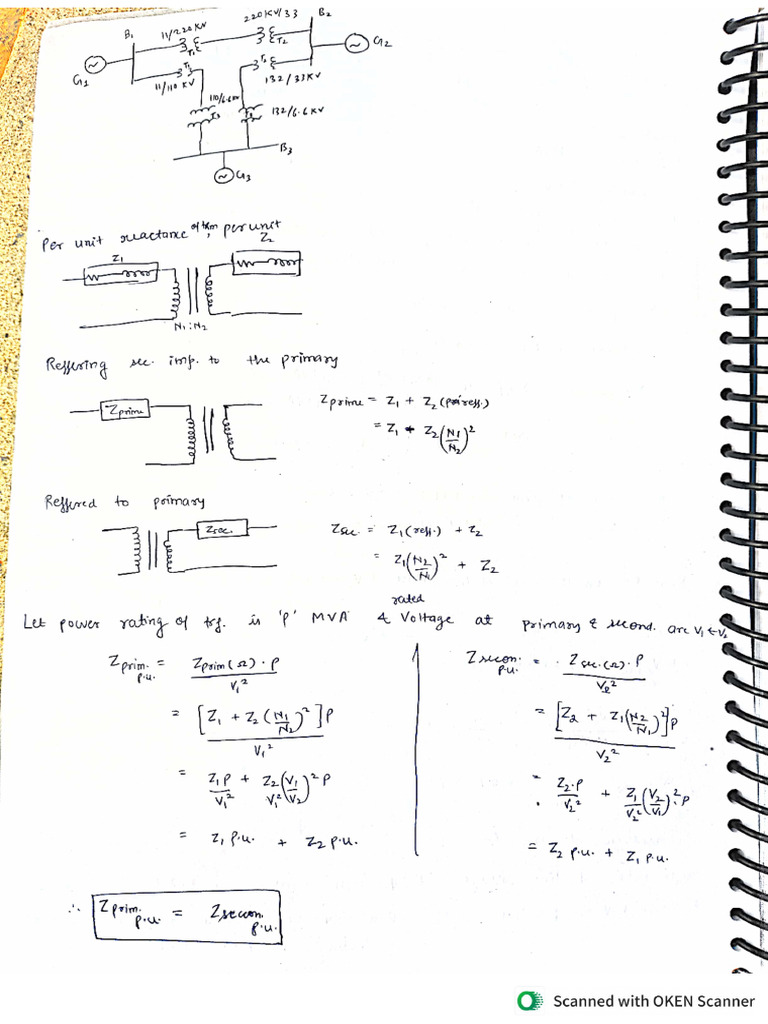 B₁
11/220 KV
T₁
220KV/33
T₂
B₂
G₁
G₂
11/110 KV
132/33KV
110/6.6KV
132/6.6KV
B₃
G₃
Per unit reactance of trm, per unit
Z₁
Z₂
N₁:N₂
Reffering sec. imp. to the primary
Zprime
Zprime = Z₁ + Z₂ (pri reff.)
= Z₁ + Z₂(N₁/N₂)²
Reffered to primary
Zsec.
Zsec. = Z₁(reff.) + Z₂
= Z₁(N₂/N₁)² + Z₂
Let power rating of trf. is 'P' MVA & rated Voltage at primary & second. are V₁ & V₂
Zprim. p.u. = Zprim(Ω)·P / V₁²
= [Z₁ + Z₂(N₁/N₂)²]P / V₁²
= Z₁P/V₁² + Z₂/V₁² (V₁/V₂)² P
= Z₁ p.u. + Z₂ p.u.
Zsecon. p.u. = Zsec.(Ω)·P / V₂²
= [Z₂ + Z₁(N₂/N₁)²]P / V₂²
= Z₂·P/V₂² + Z₁/V₂² (V₂/V₁)²·P
= Z₂ p.u. + Z₁ p.u.
∴ Zprim. p.u. = Zsecon. p.u.
Scanned with OKEN Scanner